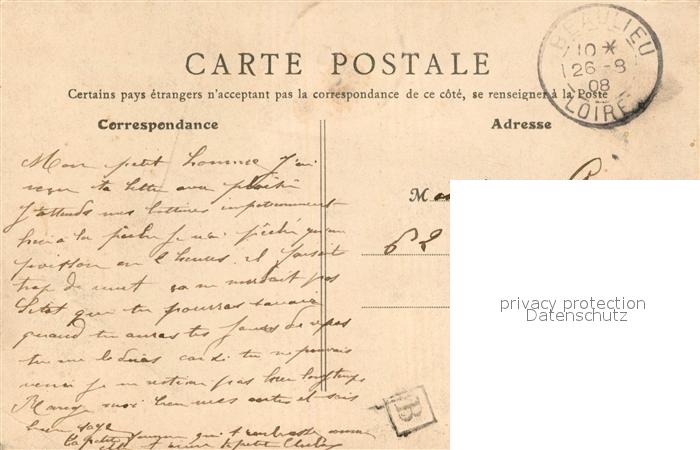 CARTE POSTALE
Certains pays étrangers n'acceptant pas la correspondance de ce côté, se renseigner à la Poste
BEAULIEU
10 *
26 -8
08
LOIRE
Correspondance
Adresse
Mon petit homme j'ai
reçu ta lettre avec plaisir
J'attends mes bottines
hier à la pêche je n'ai pêché qu'un
poisson en 2 heures. il faisait
trop de vent ça ne mordait pas
Sitot que tu pourras savoir
quand tu auras tes jours de repos
tu me le diras car si tu ne pouvais
venir je ne pas bien longtemps
bien et sois
bien sage
La petite qui t'embrasse
M
62
B
privacy protection
Datenschutz